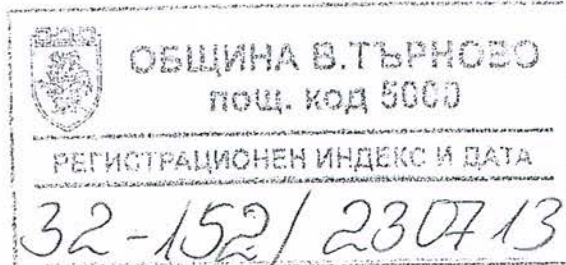 ОБЩИНА В.ТЪРНОВО
пощ. код 5000
РЕГИСТРАЦИОНЕН ИНДЕКС И ДАТА
32-152/230713